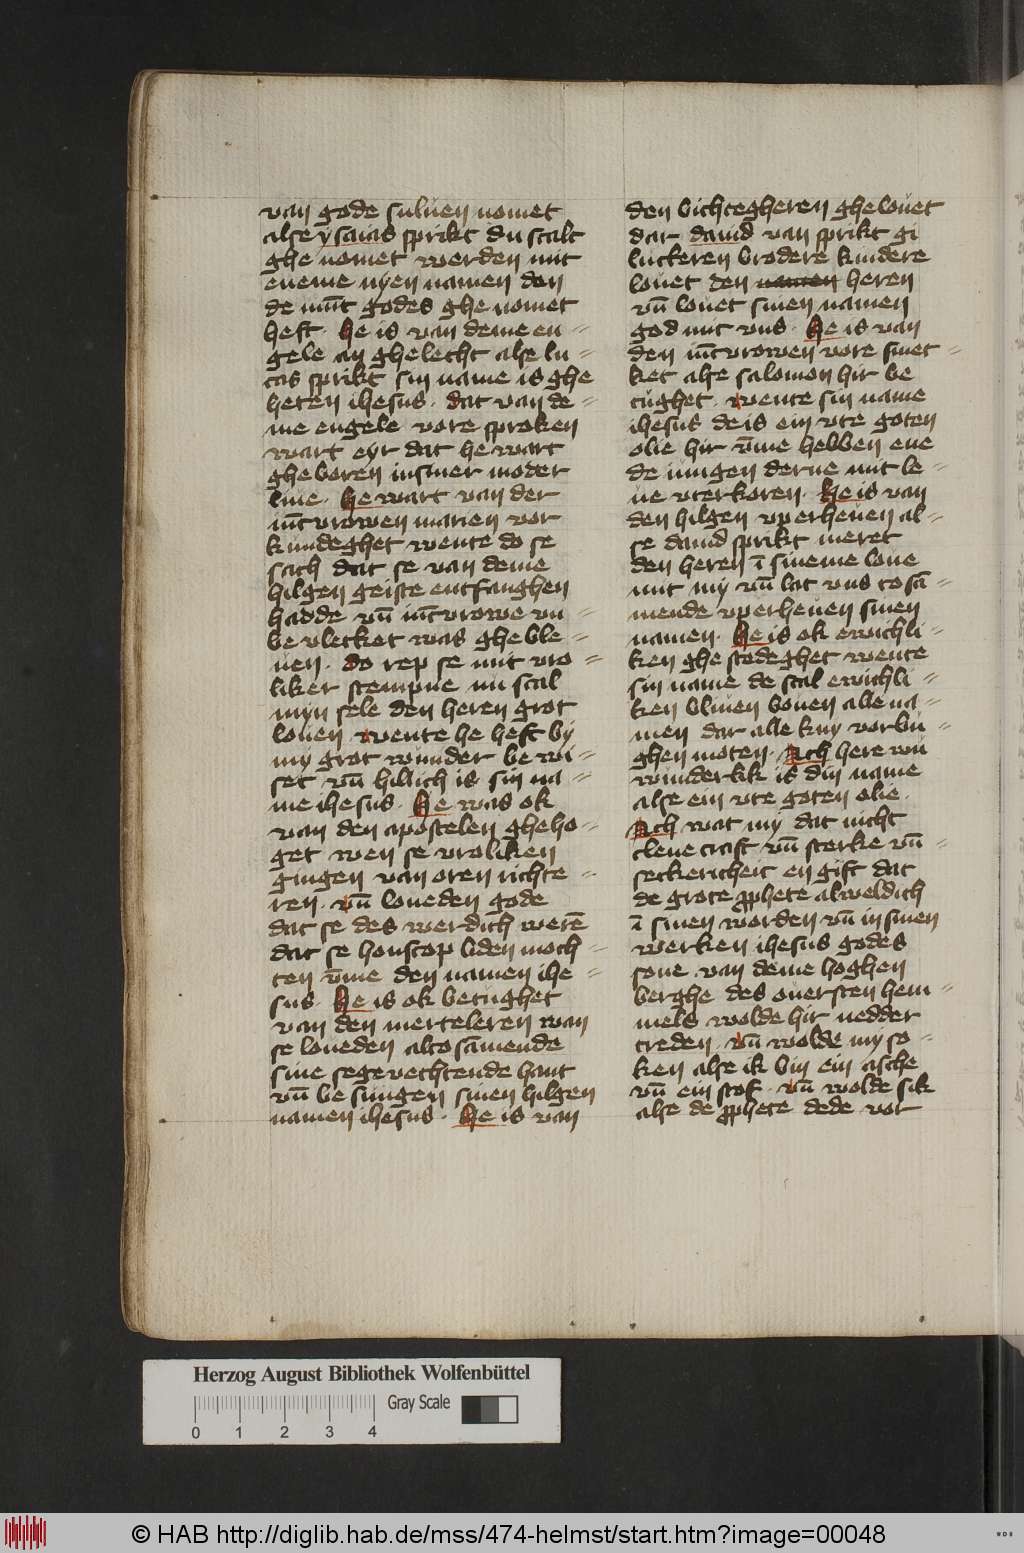 van gode suluen nomet
alse ysaias sprikt du scalt
ghe nomet werden mit
eneme nyen namen den
de mūt godes ghe nomet
heft · He is van deme en=
gele an ghelecht alse lu=
cas sprikt sin name is ghe
heten ihesus · dat van de=
me engele vore sproken
wart eyr dat he wart
gheboren in siner moder
liue · He wart van der
iūcvrowen marien vor
kundeghet wente do se
sach dat se van deme
hilgen geiste entfanghen
hadde vn̄ iūcvrowe vn=
be vlecket was ghe ble=
uen · do rep se mit vro=
liker stempne nu scal
myn sele den heren grot
louen wente he heft by
my grot wunder be wi=
set vn̄ hillich is sin na=
me ihesus · He was ok
van den apostelen gheho=
get wen se vroliken
gingen van oren richte=
ren · vn̄ loueden gode
dat se des werdich werē
dat se honscop liden moch=
ten v̄me den namen ihe=
sus · He is ok betughet
van den merteleren wan
se loueden alto sāmende
sine segevechtende hant
vn̄ be singen sinen hilgen
namen ihesus · He is van
den bichtegheren ghelouet
dar dauid van sprikt gi
luckeren brodere kindere
louet den namen heren
vn̄ louet sinen namen
god mit vns · He is van
den iūcvrowen vore smet=
ket alse salomon hir be
tughet · wente sin name
ihesus de is ein vte goten
olie hir v̄me hebben ene
de iungen derne mit le=
ue vterkoren · He is van
den hilgen vperheuen al=
se dauid sprikt meret
den heren ī sineme loue
mit my vn̄ lat vns to sā=
mende vperheuen sinen
namen · He is ok ewichli=
ken ghe stedeghet wente
sin name de scal ewichli=
ken bliuen bouen alle na=
men dar alle kny vor bu=
ghen moten · Ach here wu
wunderlik is din name
alse ein vte goten olie ·
Ach wat my dat nicht
cleue craft vn̄ sterke vn̄=
seckericheit en gift dat
de grote p̄phete alweldich
ī sinen worden vn̄ in sinen
werken ihesus godes
sone van deme hoghen
berghe des ouersten hem=
mels wolde hir nedder
treden · vn̄ wolde my so=
ken alse ik bin ein asche
vn̄ ein stof · vn̄ wolde sik
alse de p̄phete dede vor
Herzog August Bibliothek Wolfenbüttel
Gray Scale
0 1 2 3 4
© HAB http://diglib.hab.de/mss/474-helmst/start.htm?image=00048